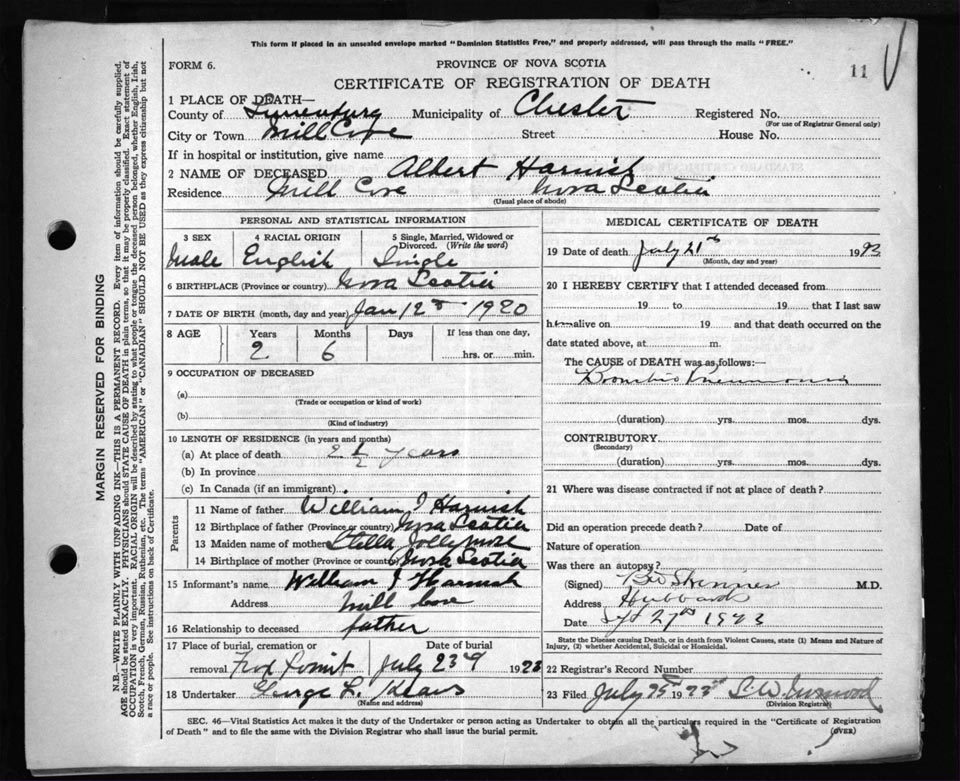 This form if placed in an unsealed envelope marked "Dominion Statistics Free," and properly addressed, will pass through the mails "FREE."
FORM 6.
PROVINCE OF NOVA SCOTIA
11
CERTIFICATE OF REGISTRATION OF DEATH
1 PLACE OF DEATH—
County of Lunenburg Municipality of Chester Registered No.
(For use of Registrar General only)
City or Town Mill Cove Street House No.
If in hospital or institution, give name
2 NAME OF DECEASED Albert Harnish
Residence Mill Cove Nova Scotia
(Usual place of abode)
PERSONAL AND STATISTICAL INFORMATION
3 SEX
Male
4 RACIAL ORIGIN
English
5 Single, Married, Widowed or Divorced. (Write the word)
Single
6 BIRTHPLACE (Province or country) Nova Scotia
7 DATE OF BIRTH (month, day and year) Jan 12 1920
8 AGE Years Months Days If less than one day,
2 6 hrs. or min.
9 OCCUPATION OF DECEASED
(a)
(Trade or occupation or kind of work)
(b)
(Kind of industry)
10 LENGTH OF RESIDENCE (in years and months)
(a) At place of death 2 1/2 years
(b) In province
(c) In Canada (if an immigrant)
Parents
11 Name of father William J Harnish
12 Birthplace of father (Province or country) Nova Scotia
13 Maiden name of mother Stella Jollymore
14 Birthplace of mother (Province or country) Nova Scotia
15 Informant's name William J Harnish
Address Mill Cove
16 Relationship to deceased father
17 Place of burial, cremation or Date of burial
removal July 23 1923
18 Undertaker George L.
(Name and address)
MEDICAL CERTIFICATE OF DEATH
19 Date of death July 21st 1923
(Month, day and year)
20 I HEREBY CERTIFY that I attended deceased from
19 to 19 that I last saw
h alive on 19 and that death occurred on the
date stated above, at m.
The CAUSE of DEATH was as follows:—
Broncho Pneumonia
(duration) yrs. mos. dys.
CONTRIBUTORY
(Secondary)
(duration) yrs. mos. dys.
21 Where was disease contracted if not at place of death?
Did an operation precede death? Date of
Nature of operation
Was there an autopsy?
(Signed) Skinner M.D.
Address Hubbards
Date 27th 1923
State the Disease causing Death, or in death from Violent Causes, state (1) Means and Nature of Injury, (2) whether Accidental, Suicidal or Homicidal.
22 Registrar's Record Number
23 Filed July 25th 1923
(Division Registrar)
SEC. 46—Vital Statistics Act makes it the duty of the Undertaker or person acting as Undertaker to obtain all the particulars required in the "Certificate of Registration
of Death" and to file the same with the Division Registrar who shall issue the burial permit.
(OVER)
MARGIN RESERVED FOR BINDING
N.B.—WRITE PLAINLY WITH UNFADING INK—THIS IS A PERMANENT RECORD. Every item of information should be carefully supplied.
AGE should be stated EXACTLY. PHYSICIANS should STATE CAUSE OF DEATH in plain terms, so that it may be properly classified. Exact statement of
OCCUPATION is very important. RACIAL ORIGIN will be described by stating to what people or tongue the deceased person belonged, whether English, Irish,
Scotch, French, German, Russian, Ruthenian, etc. The terms "AMERICAN" or "CANADIAN" SHOULD NOT BE USED as they express citizenship but not
a race or people. See instructions on back of Certificate.